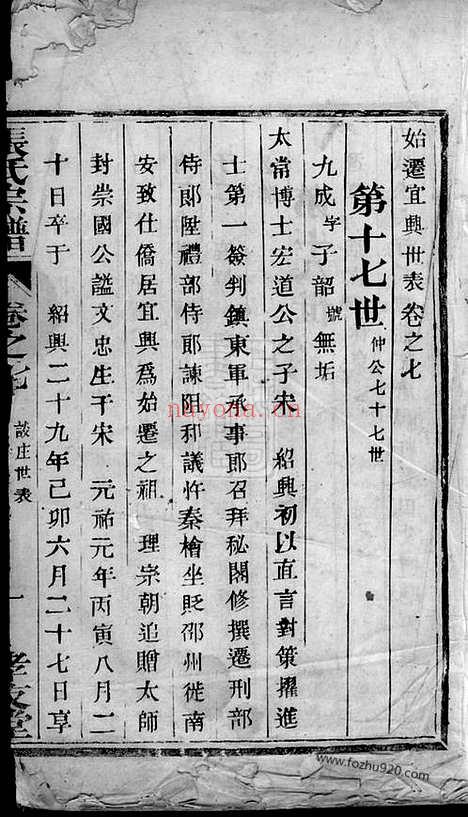 始遷宜興世表 卷之七
第十七世 仲公七十七世
九成 字 子韶 號 無垢
太常博士宏道公之子宋 紹興初以直言對策擢進
士第一簽判鎮東軍承事郎召拜秘閣修撰遷刑部
侍郎陞禮部侍郎諫阻和議忤秦檜坐貶邵州徙南
安致仕僑居宜興為始遷之祖 理宗朝追贈太師
封崇國公諡文忠生于宋 元祐元年丙寅八月二
十日卒于 紹興二十九年己卯六月二十七日享
張氏宗譜 卷之七 談庄世表 一 孝友堂
nayona.cn
www.fozhu920.com